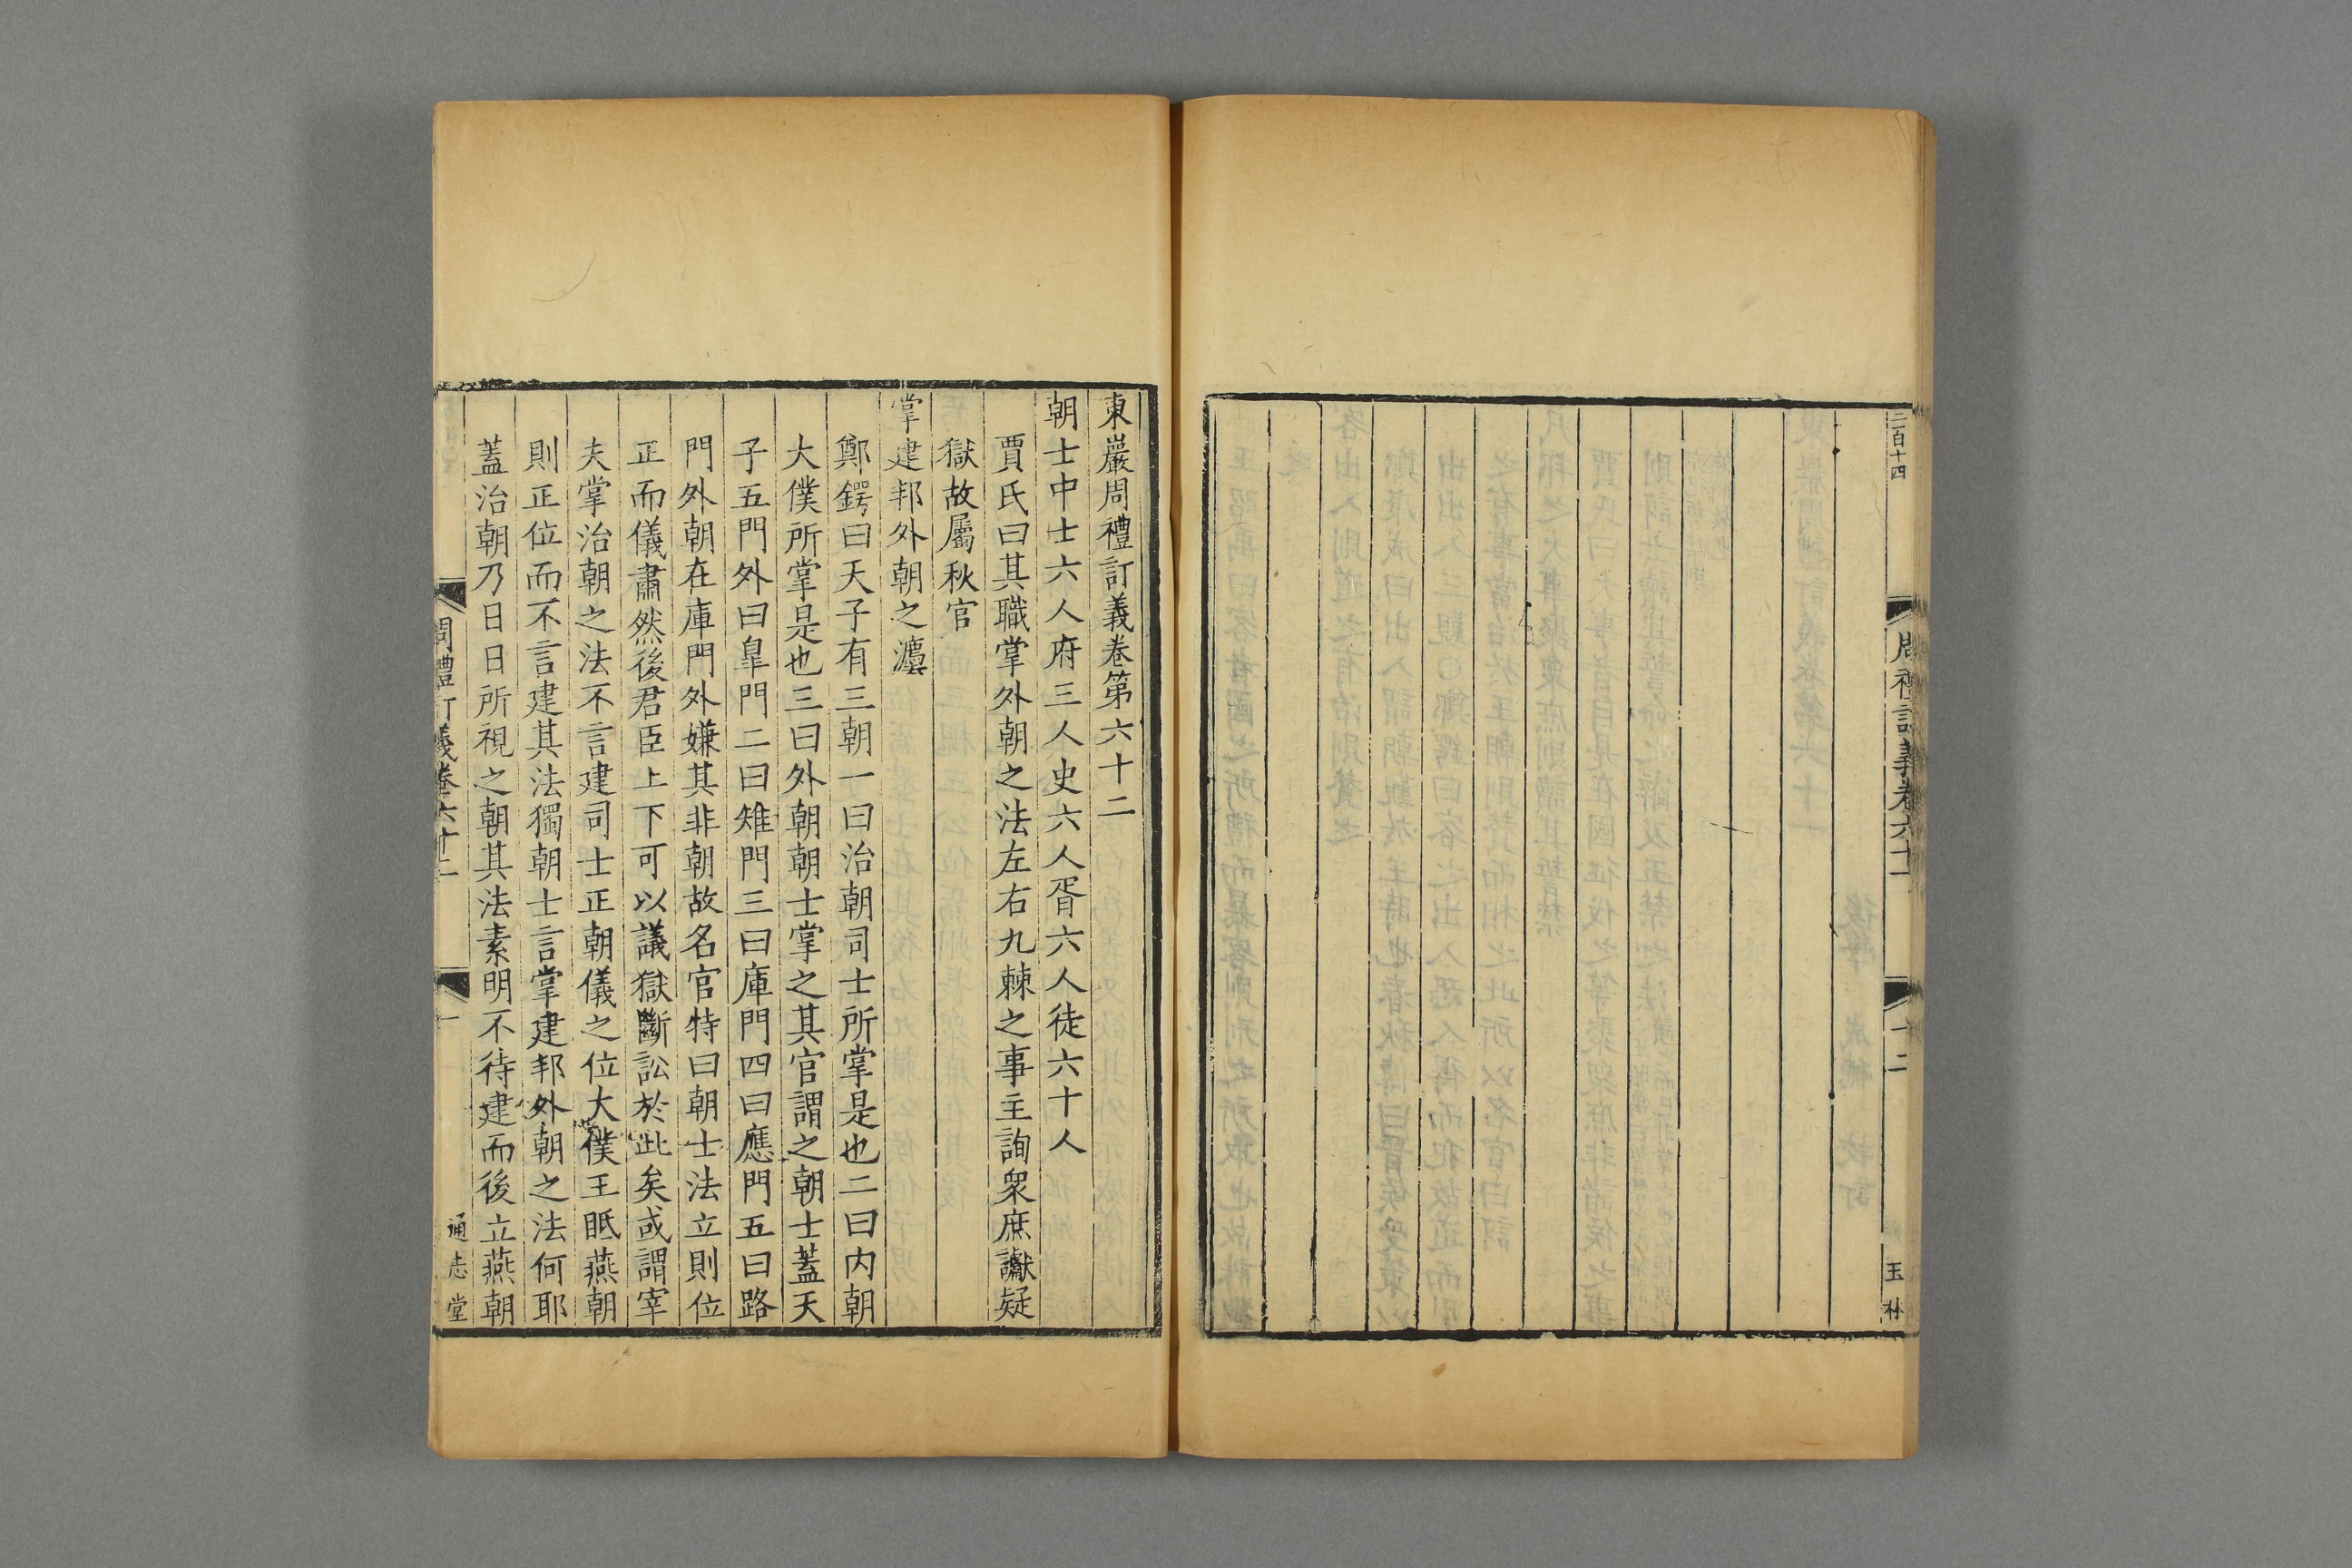 二百十四
周禮訂義卷六十一
十二
玉
東巖周禮訂義卷第六十二
朝士中士六人府三人史六人胥六人徒六十人
賈氏曰其職掌外朝之法左右九棘之事主詢衆庶讞疑
獄故屬秋官
掌建邦外朝之灋
鄭鍔曰天子有三朝一曰治朝司士所掌是也二曰内朝
大僕所掌是也三曰外朝朝士掌之其官謂之朝士蓋天
子五門外曰臯門二曰雉門三曰庫門四曰應門五曰路
門外朝在庫門外嫌其非朝故名官特曰朝士法立則位
正而儀肅然後君臣上下可以議獄斷訟於此矣或謂宰
夫掌治朝之法不言建司士正朝儀之位大僕王眡燕朝
則正位而不言建其法獨朝士言掌建邦外朝之法何耶
蓋治朝乃日日所視之朝其法素明不待建而後立燕朝
周禮訂義卷六十二
一
通志堂